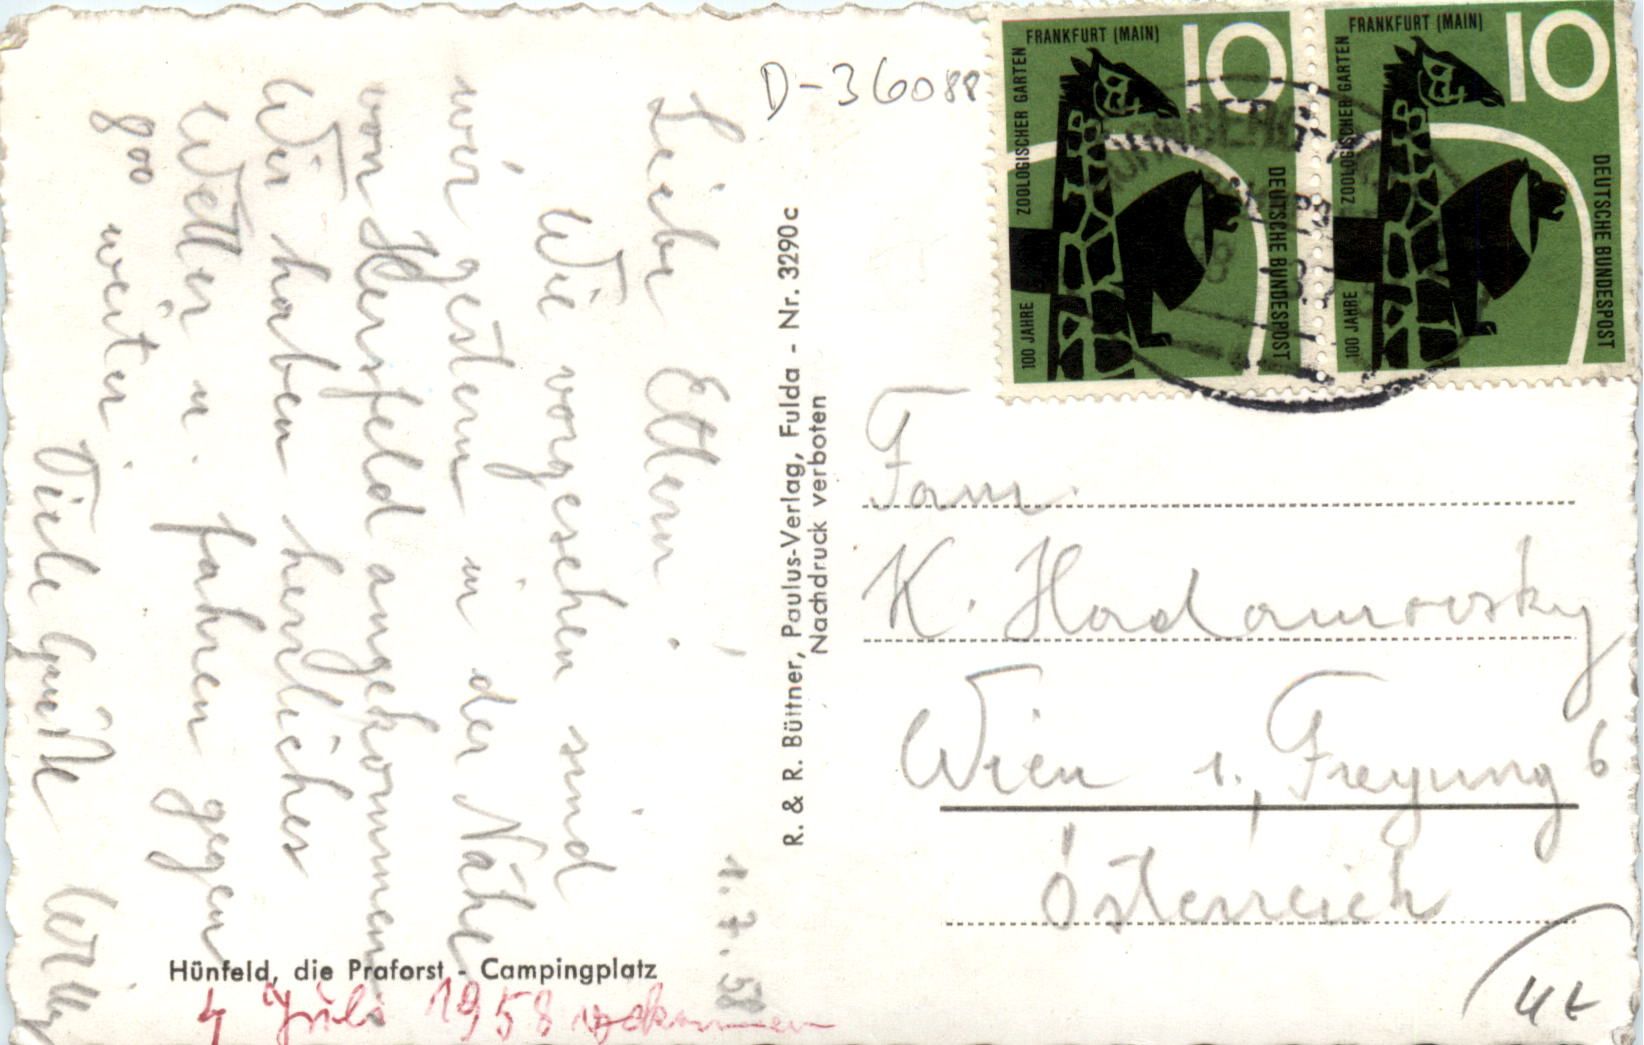 1.7.58
Liebe Eltern!
Wie vorgesehen sind
wir gestern in der Nähe
von Hersfeld angekommen
Wir haben herrliches
Wetter u. fahren gegen
800 weiter.
Viele Grüße Willy
Hünfeld, die Praforst - Campingplatz
4 Juli 1958
R. & R. Büttner, Paulus-Verlag, Fulda - Nr. 3290c
Nachdruck verboten
D-36088
FRANKFURT (MAIN) 10
ZOOLOGISCHER GARTEN
100 JAHRE
DEUTSCHE BUNDESPOST
FRANKFURT (MAIN) 10
ZOOLOGISCHER GARTEN
100 JAHRE
DEUTSCHE BUNDESPOST
Fam.
K. Hadamovsky
Wien 1., Freyung 6
Österreich